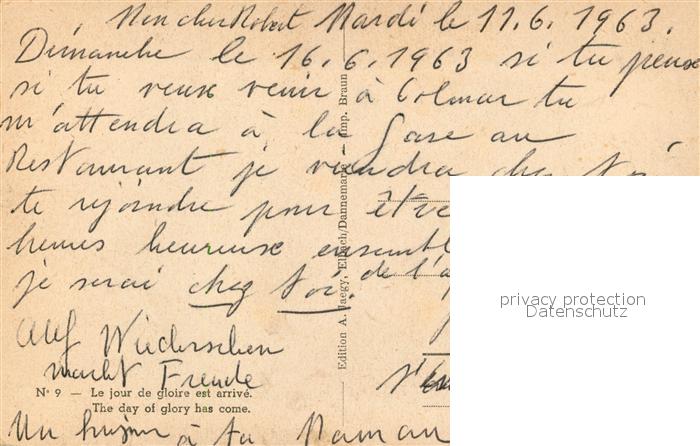 Mon cher Robert Mardi le 11.6.1963.
Dimanche le 16.6.1963 si tu peux
si tu veux venir à Colmar tu
m'attendra à la Gare au
Restaurant je viendra chez toi
te rejoindre pour être
heures heureuse ensembl
je serai chez toi. de l'a
Auf Wiedersehen
macht Freude
N° 9 — Le jour de gloire est arrivé.
The day of glory has come.
Un à ta Maman
Edition A. Jaegy, Elbach/Dannemarie — Imp. Braun
privacy protection
Datenschutz